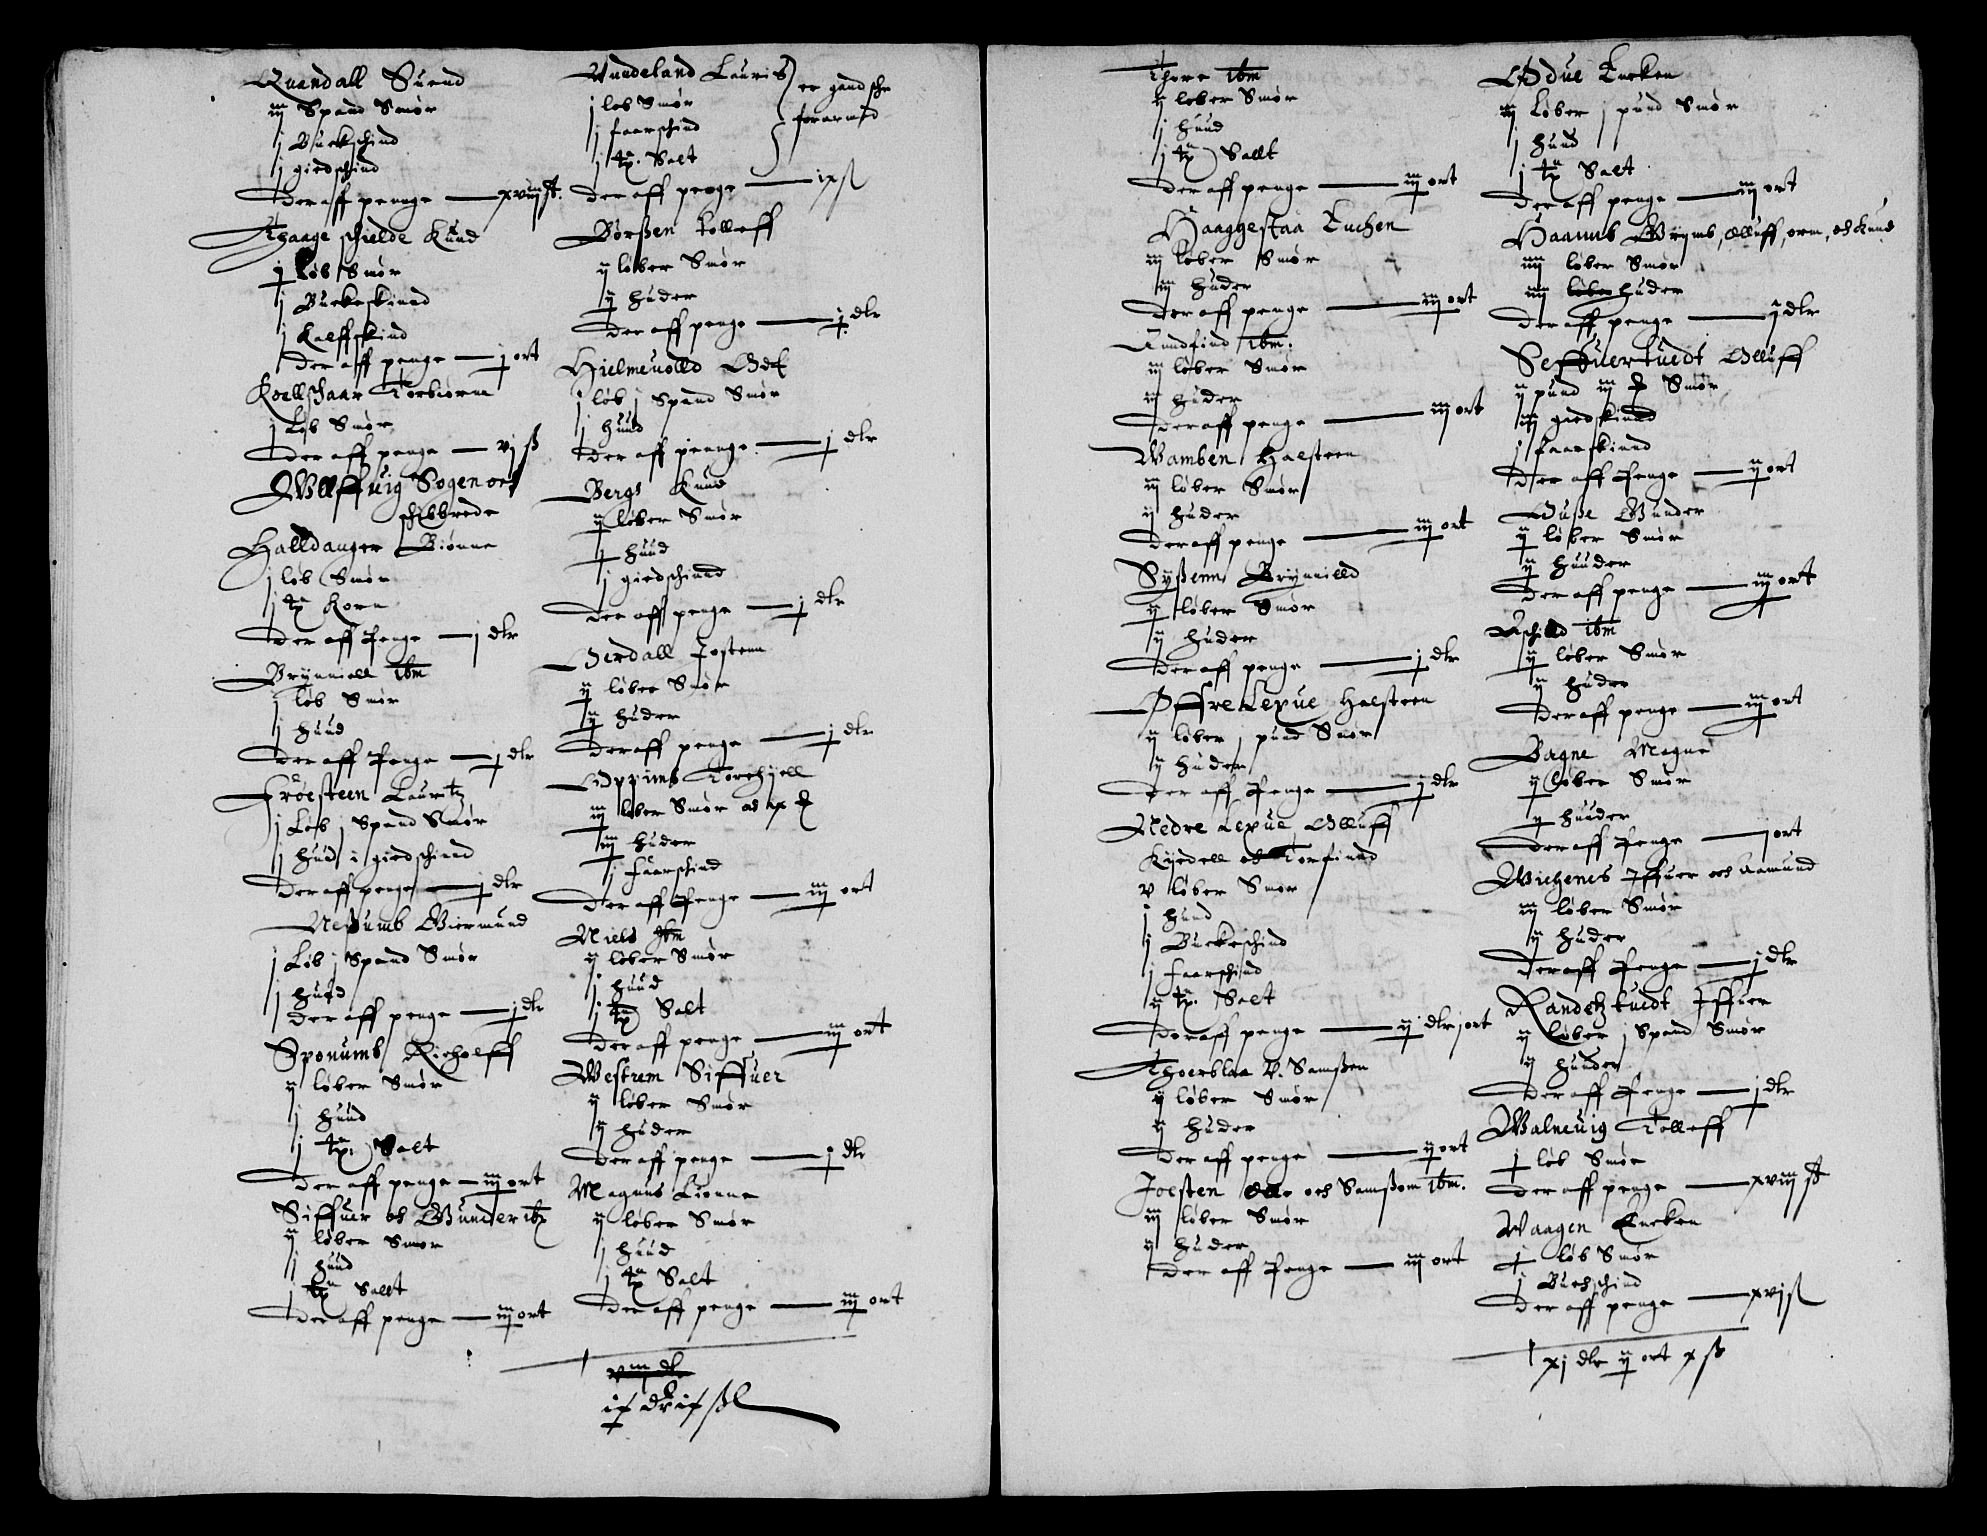 Quandall Suend
iij Spand Smør
j Buckschind
j giedschind
der aff penge — xviij ß.
Thaage schielde Knud
j løb Smør
j Buckeskind
j Kalffskind
der aff penge — j ort
Koellschaar Torbiørnn
j Løb Smør
der aff penge — vj ß
Wllffuig Sogen och
schibbrede
Halldanger Biønne
j løb Smør
j tn Korn
der aff Penge — j dlr
Brynniell ibm
j løb Smør
j huud
der aff Penge — j dlr
Frøesteen Lauritz
j Løb j Spand Smør
j hud i giedschind
der aff penge — j dlr
Neßumb Giermund
j Løb j Spand Smør
j hud
der aff penge — j dlr
Sponumb Richolff
ij løber Smør
j huud
j tn Salt
der aff penge — iij ort
Siffuer och Gunder ibm
ij løber Smør
j huud
j tn Salt
der aff penge — iij ort
Vnndeland Lauris
j løb Smør
j faarschind
j tn. Salt
er gandsche
forarmd
der aff penge — ix ß
Børßen Tolleff
ij løber Smør
ij huder
der aff penge — j dlr
Hielmeuolld Od
j løb j Spand Smør
j huud
der aff pennge — j dlr
Bergs Knud
ij løber Smør
j huud
j giedschind
der aff penge — j dlr
Ocrdall Jostenn
ij løber Smør
ij huder
der aff penge — j dlr
Oppimb Torchiell
iij løber Smør och ix
iij huder
j Faarschind
der aff Penge — iij ort
Niels ibm
ij løber Smør
j huud
j tn Salt
der aff penge — iij ort
Westrem Siffuer
ij løber Smør
ij huder
der aff penge — j dlr
Magnus Lionne
ij løber Smør
j huud
j tn Salt
der aff penge — iij ort
ix dlr ix ßl
Thore ibm
ij løber Smør
j huud
j tn Sallt
der aff penge — iij ort
Haaggestaa Euchen
iij løber Smør
iij huder
der aff penge — iij ort
Aindfind ibm.
iij løber Smør
iij huder
der aff penge — iij ort
Wamben Halsteen
iij løber Smør
ij huder
der aff penge — iij ort
Syßenn Brynnielld
ij løber Smør
ij huder
der aff penge — j dlr
Øffre Lexue Halsteen
ij løber j pund Smør
ij huder
der aff Penge — j dlr
Nedre Lexue Olluff
Kyedell och Torfind
v løber Smør
j huud
j Buckeschind
j faarschind
ij tn. Salt
der aff penge — ij dlr j ort
Thoerblaa V. Samßen
ij løber Smør
ij huder
der aff penge — ij ort
Joesten och Samßom ibm.
iij løber Smør
ij huder
der aff Penge — iij ort
Odue Encken
iij Løber j pund Smør
j huud
j tn Salt
der aff penge — iij ort
Haaimb Grymb, Olluff, orm, och Knud
iiij løber Smør
iiij løber huder
der aff penge — ij dlr
Seffuertuedt Olluff
ij pund iij Smør
iij giedskind
j faarskind
der aff Penge — ij ort
Duße Gunder
ij løber Smør
ij huuder
der aff penge — iij ort
Aschilld ibm
ij løber Smør
ij huder
der aff penge — iij ort
Bagne Magne
ij løber Smør
ij huuder
der aff Penge — j ort
Wichenes Jffuer och Aamund
iij løber Smør
ij huder
der aff Penge — j dlr
Randetztuedt Jffuer
ij løber j Spand Smør
ij huuder
der aff Penge — j dlr
Walneuig Tolleff
j løb Smør
der aff penge — xviij ß
Waagen Encken
j løb Smør
j Buchschind
der aff penge — xvj ß
xj dlr ij ort x ß